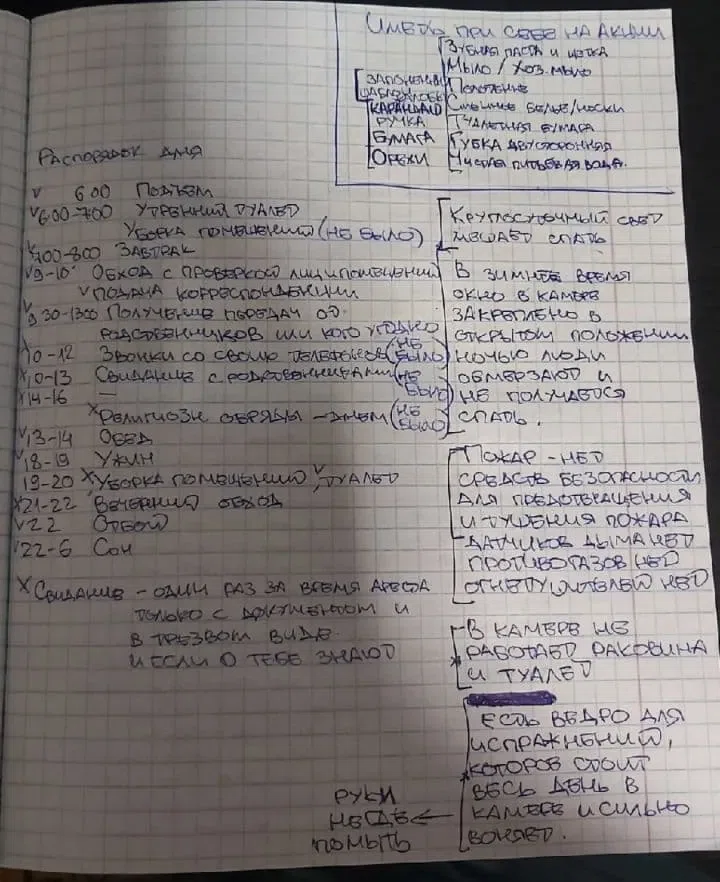 Иметь при себе на акции
Зубная паста и щетка
Мыло / хоз. мыло
Полотенце
Сменное белье/носки
Туалетная бумага
Губка двусторонняя
Чистая питьевая вода.
Заполненный
шаблон жалобы
Карандаш
Ручка
Бумага
Орехи
Распорядок дня
V 6 00 Подъем
V 6 00-7 00 Утренний туалет
Уборка помещений (не было)
X 7 00-8 00 Завтрак
V 9-10 Обход с проверкой лиц и помещений
V Подача корреспонденции
V 9 30-13 00 Получение передач от
родственников или кого угодно
X 10-12 Звонки со своих телефонов (не было)
X 10-13 Свидание с родственниками (не было)
X 14-16 —
X Религиозн обряды - днем (не было)
V 13-14 Обед
V 18-19 Ужин
19-20 X Уборка помещений, V туалет
X 21-22 Вечерний обход
V 22 Отбой
V 22-6 Сон
X Свидание - один раз за время ареста
только с документом и
в трезвом виде.
и если о тебе знают
Круглосуточный свет
мешает спать
В зимнее время
окно в камере
закреплено в
открытом положении
ночью люди
обмерзают и
не получается
спать.
Пожар - нет
средств безопасности
для предотвращения
и тушения пожара
датчиков дыма нет
противогазов нет
огнетушителей нет
В камере не
работает раковина
и туалет
Есть ведро для
испражнений,
которое стоит
весь день в
камере и сильно
воняет.
Руки
негде ←
помыть